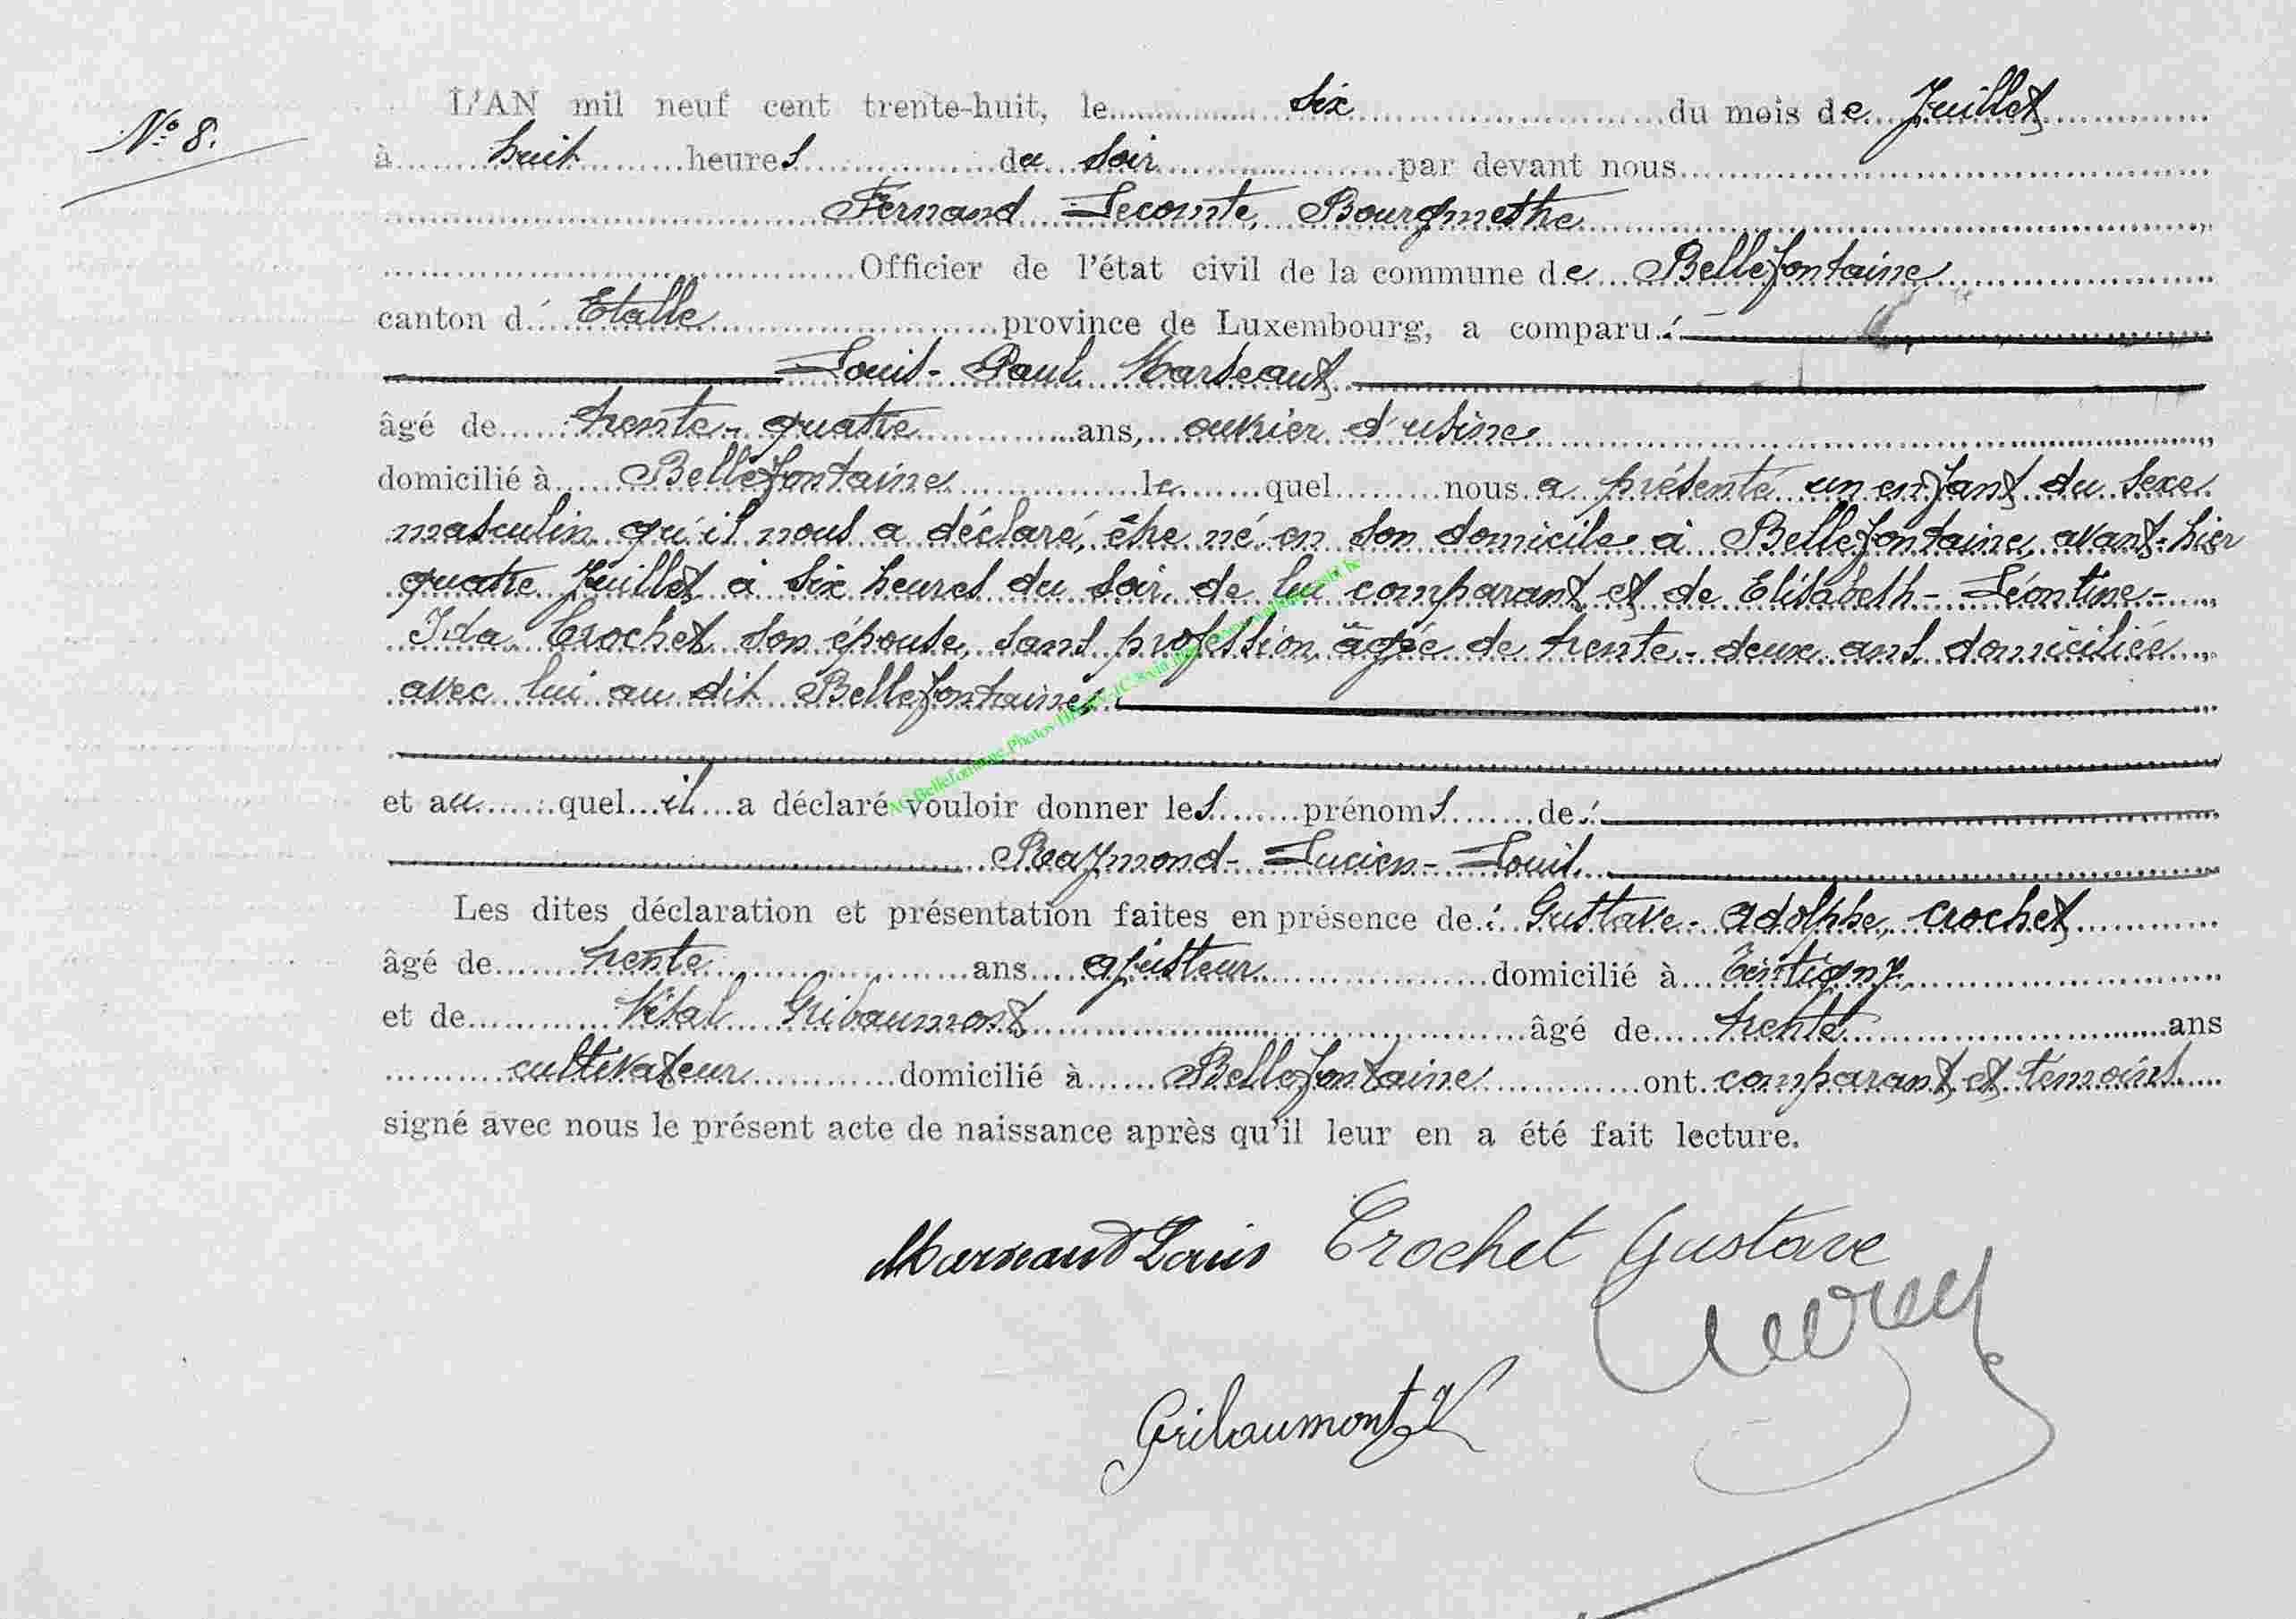 N° 8.
L'AN mil neuf cent trente-huit, le six du mois de Juillet
à huit heures du soir par devant nous
Fernand Lecomte, Bourgmestre
Officier de l'état civil de la commune de Bellefontaine
canton d' Etalle province de Luxembourg, a comparu :
Louis-Paul Marseaut
âgé de trente-quatre ans, ouvrier d'usine
domicilié à Bellefontaine lequel nous a présenté un enfant du sexe
masculin qu'il nous a déclaré, être né en son domicile à Bellefontaine, avant-hier
quatre Juillet à six heures du soir, de lui comparant et de Elisabeth-Léontine-
Ida Crochet son épouse, sans profession, âgée de trente-deux ans, domiciliée
avec lui au dit Bellefontaine,
et auquel il a déclaré vouloir donner les prénoms de :
Raymond-Lucien-Louis
Les dites déclaration et présentation faites en présence de : Gustave-Adolphe, Crochet
âgé de trente ans ajusteur domicilié à Tintigny
et de Vital Gribaumont âgé de trente ans
cultivateur domicilié à Bellefontaine ont comparant et témoins
signé avec nous le présent acte de naissance après qu'il leur en a été fait lecture.
Louis Crochet Gustave
Gribaumont V